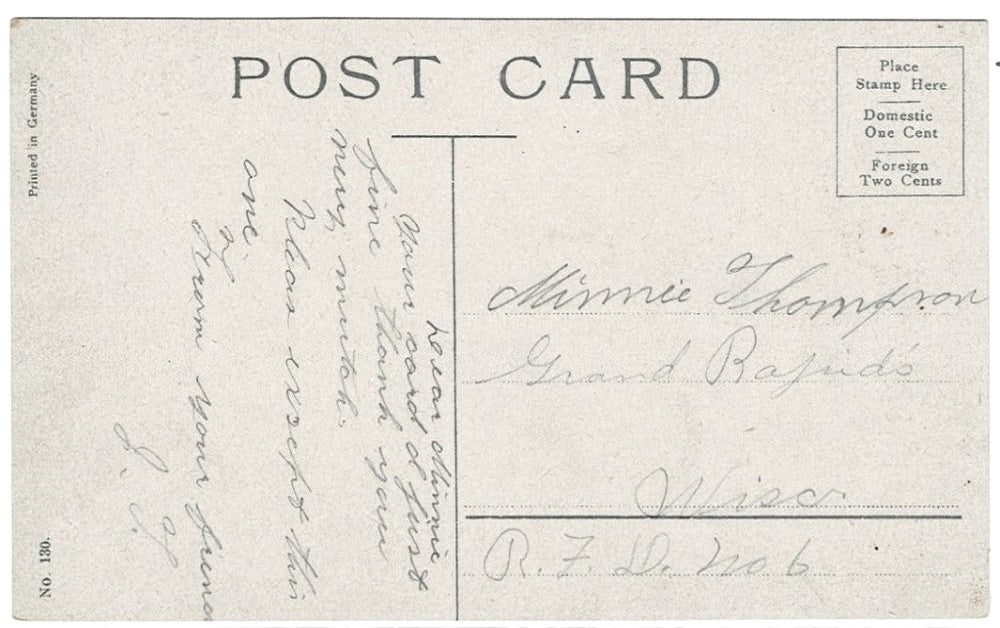 POST CARD
Place
Stamp Here
Domestic
One Cent
Foreign
Two Cents
Printed in Germany
No. 130.
Dear Minnie
Your card
fine thank you
very mutch.
Pleas except this
one
From your friend
Minnie Thompson
Grand Rapids
Wisc.
R. F. D. No 6